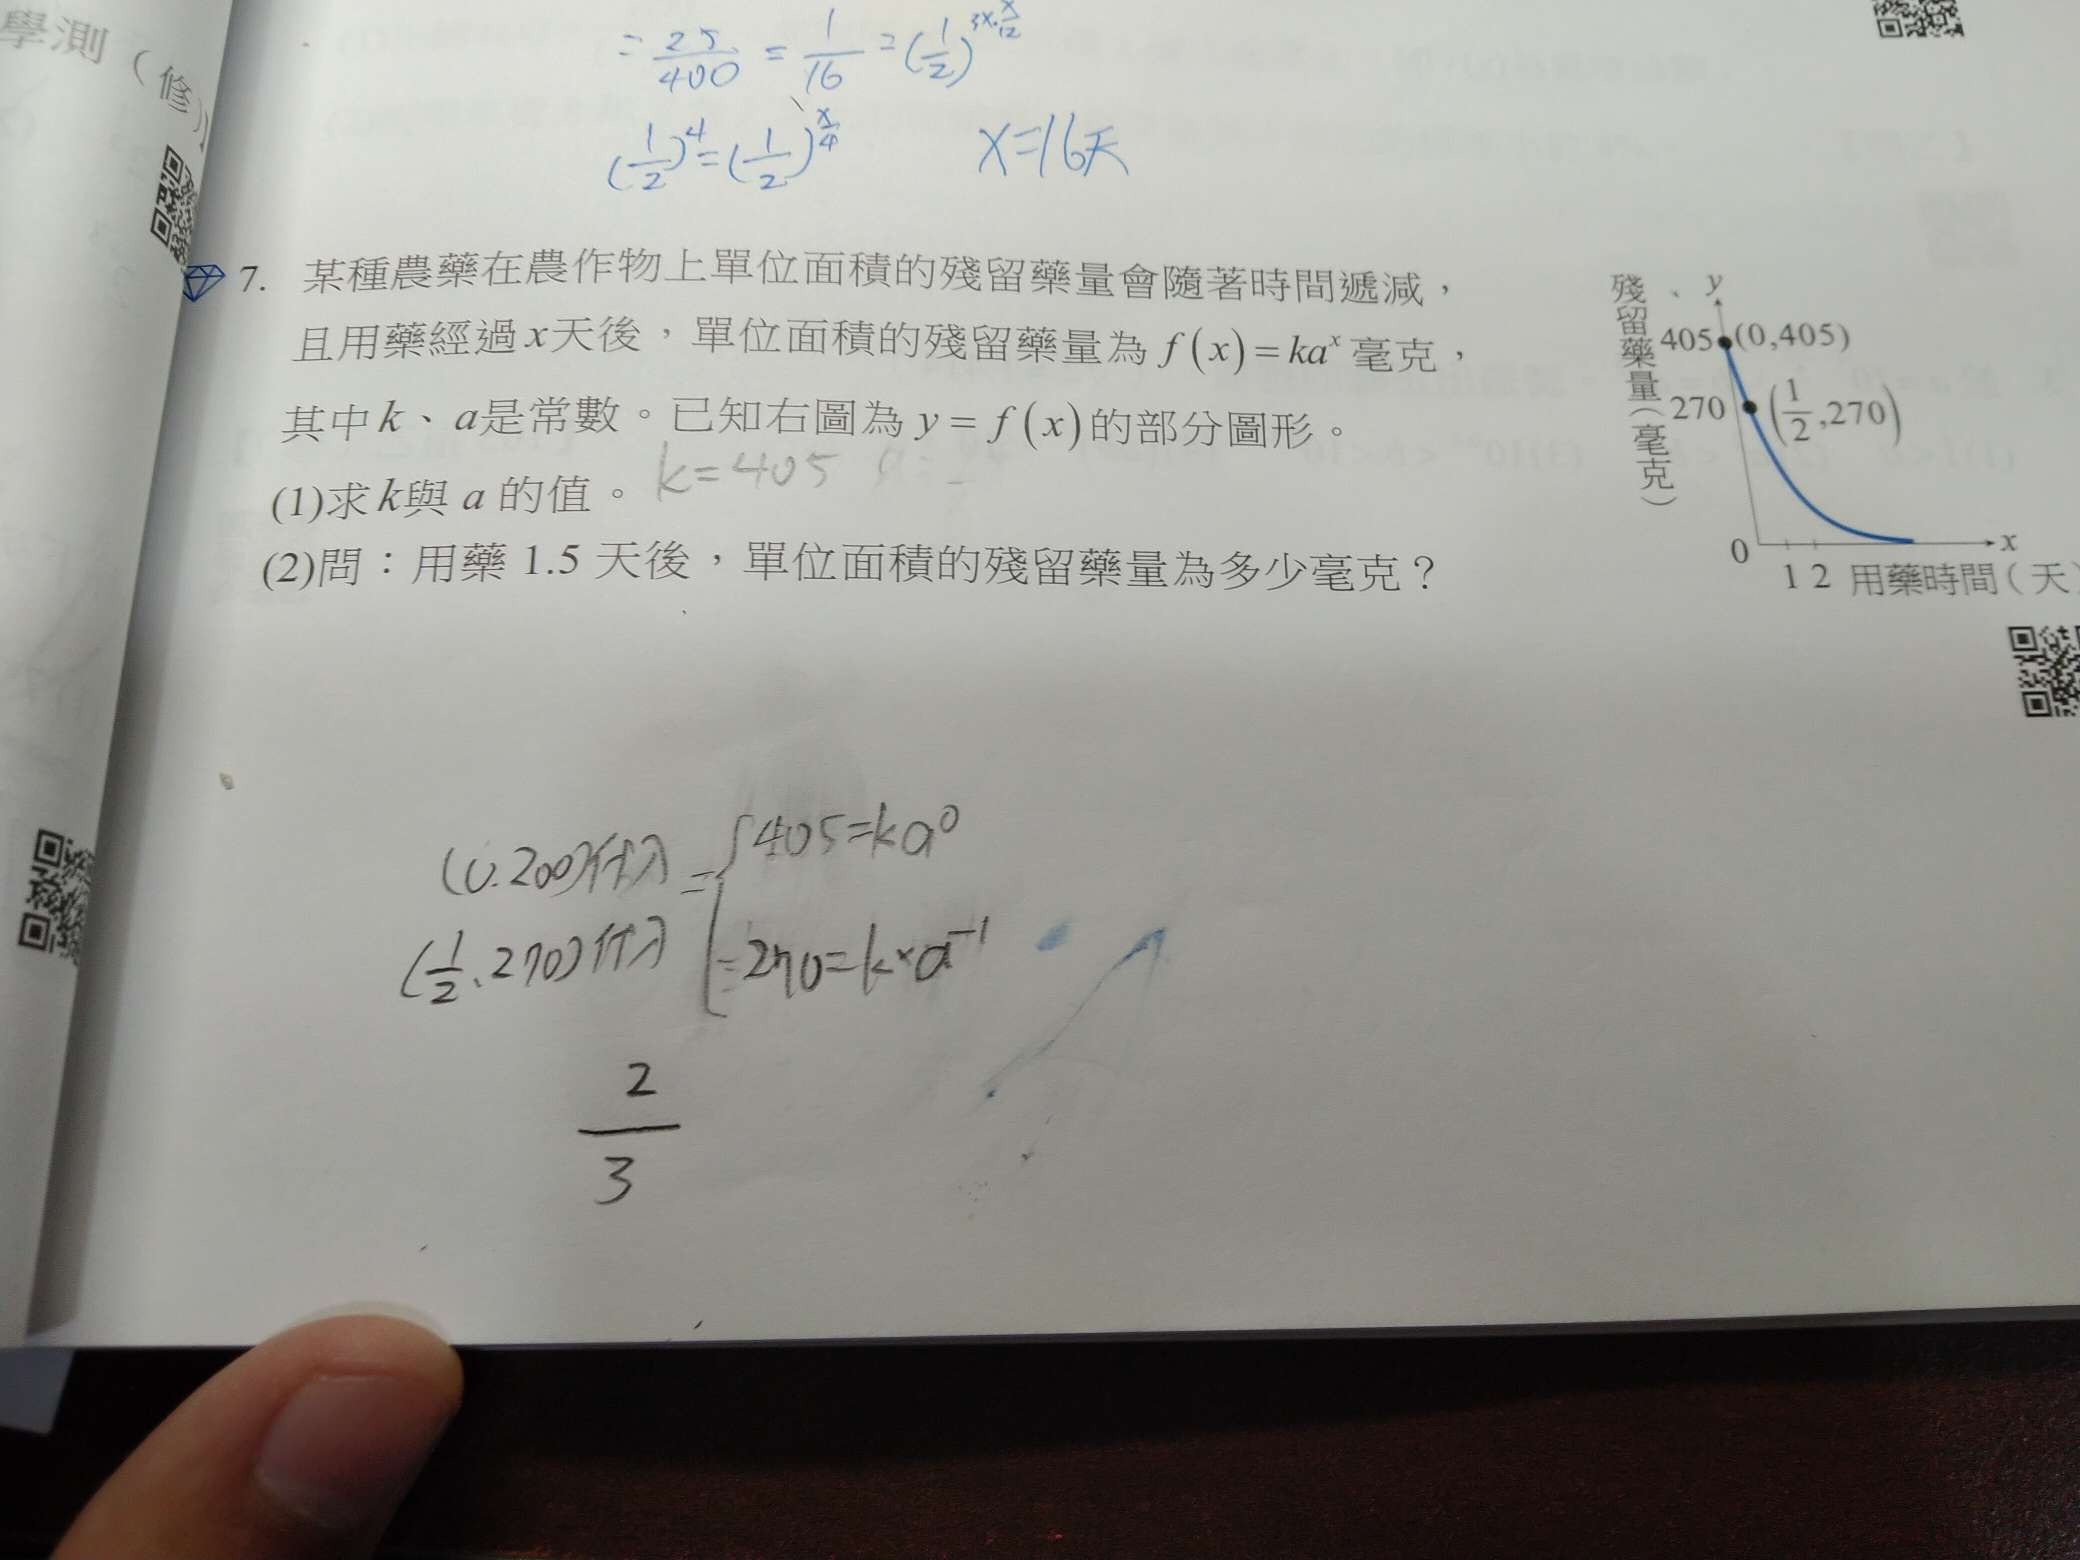 學測（修）
= 25/400 = 1/16 = (1/2)^{3x·x/12}
(1/2)^4 = (1/2)^{x/4} x=16天
7. 某種農藥在農作物上單位面積的殘留藥量會隨著時間遞減，
且用藥經過x天後，單位面積的殘留藥量為 f(x)=ka^x 毫克，
其中k、a是常數。已知右圖為 y=f(x)的部分圖形。
(1)求k與 a 的值。 k=405 a=
(2)問：用藥 1.5 天後，單位面積的殘留藥量為多少毫克？
殘留藥量（毫克）
y
405 (0,405)
270 (1/2,270)
0 1 2 x
用藥時間（天）
(0.200)代入 = { 405=ka^0
(1/2、270)代入 =270=k×a^{-1}
2
3